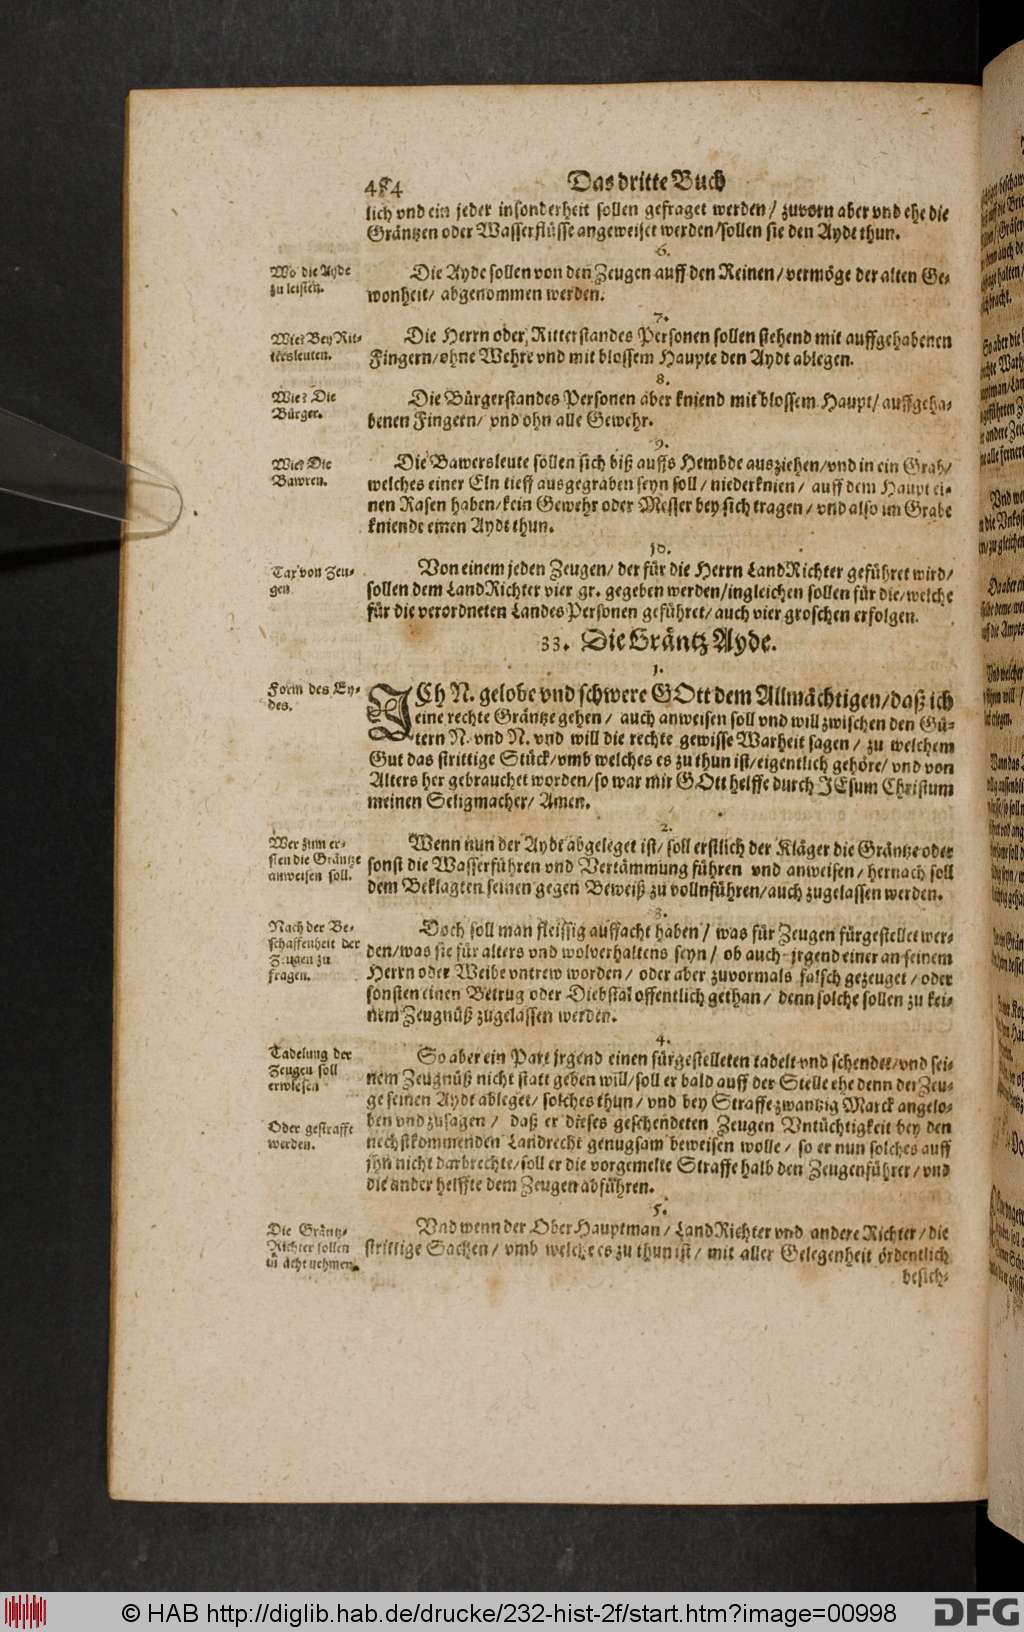 484 Das dritte Buch
lich vnd ein jeder insonderheit sollen gefraget werden / zuvorn aber vnd ehe die
Gräntzen oder Wasserflüsse angeweiset werden / sollen sie den Aydt thun.
6.
Wo die Ayde
zu leisten.
Die Ayde sollen von den Zeugen auff den Reinen / vermöge der alten Ge-
wonheit / abgenommen werden.
7.
Wie? Bey Rit-
tersleuten.
Die Herrn oder Ritterstandes Personen sollen stehend mit auffgehabenen
Fingern / ohne Wehre vnd mit blossem Haupte den Aydt ablegen.
8.
Wie? Die
Bürger.
Die Bürgerstandes Personen aber kniend mit blossem Haupt / auffgeha-
benen Fingern / vnd ohn alle Gewehr.
9.
Wie? Die
Bawren.
Die Bawersleute sollen sich biß auffs Hembde ausziehen / vnd in ein Grab /
welches einer Eln tieff ausgegraben seyn soll / niederknien / auff dem Haupt ei-
nen Rasen haben / kein Gewehr oder Messer bey sich tragen / vnd also im Grabe
kniende einen Aydt thun.
10.
Tax von Zeu-
gen
Von einem jeden Zeugen / der für die Herrn LandRichter geführet wird /
sollen dem LandRichter vier gr. gegeben werden / ingleichen sollen für die / welche
für die verordneten Landes Personen geführet / auch vier groschen erfolgen.
33. Die Gräntz Ayde.
1.
Form des Ey-
des.
ICh N. gelobe vnd schwere GOtt dem Allmächtigen / daß ich
eine rechte Gräntze gehen / auch anweisen soll vnd will zwischen den Gü-
tern N. vnd N. vnd will die rechte gewisse Warheit sagen / zu welchem
Gut das strittige Stück / vmb welches es zu thun ist / eigentlich gehöre / vnd von
Alters her gebrauchet worden / so war mir GOtt helffe durch JEsum Christum
meinen Seligmacher / Amen.
2.
Wer zum er-
sten die Gräntze
anweisen soll.
Wenn nun der Aydt abgeleget ist / soll erstlich der Kläger die Gräntze oder
sonst die Wasserführen vnd Vertämmung führen vnd anweisen / hernach soll
dem Beklagten seinen gegen Beweiß zu vollnführen / auch zugelassen werden.
3.
Nach der Be-
schaffenheit der
Zeugen zu
fragen.
Doch soll man fleissig auffacht haben / was für Zeugen fürgestellet wer-
den / was sie für alters vnd wolverhaltens seyn / ob auch jrgend einer an seinem
Herrn oder Weibe vntrew worden / oder aber zuvormals falsch gezeuget / oder
sonsten einen Betrug oder Diebstal offentlich gethan / denn solche sollen zu kei-
nem Zeugnüß zugelassen werden.
4.
Tadelung der
Zeugen soll
erwiesen
So aber ein Part jrgend einen fürgestelleten tadelt vnd schendet / vnd sei-
nem Zeugnüß nicht statt geben will / soll er bald auff der Stelle ehe denn der Zeu-
ge seinen Aydt ableget / solches thun / vnd bey Straffe zwantzig Marck angelo-
Oder gestrafft
werden.
ben vnd zusagen / daß er dieses geschendeten Zeugen Vntüchtigkeit bey den
nechstkommenden Landrecht genugsam beweisen wolle / so er nun solches auff
jhn nicht darbrechte / soll er die vorgemelte Straffe halb den Zeugenführer / vnd
die ander helffte dem Zeugen abführen.
5.
Die Gräntz-
Richter sollen
in acht nehmen.
Vnd wenn der Ober Hauptman / LandRichter vnd andere Richter / die
strittige Sachen / vmb welche es zu thun ist / mit aller Gelegenheit ördentlich
besich-
© HAB http://diglib.hab.de/drucke/232-hist-2f/start.htm?image=00998
DFG